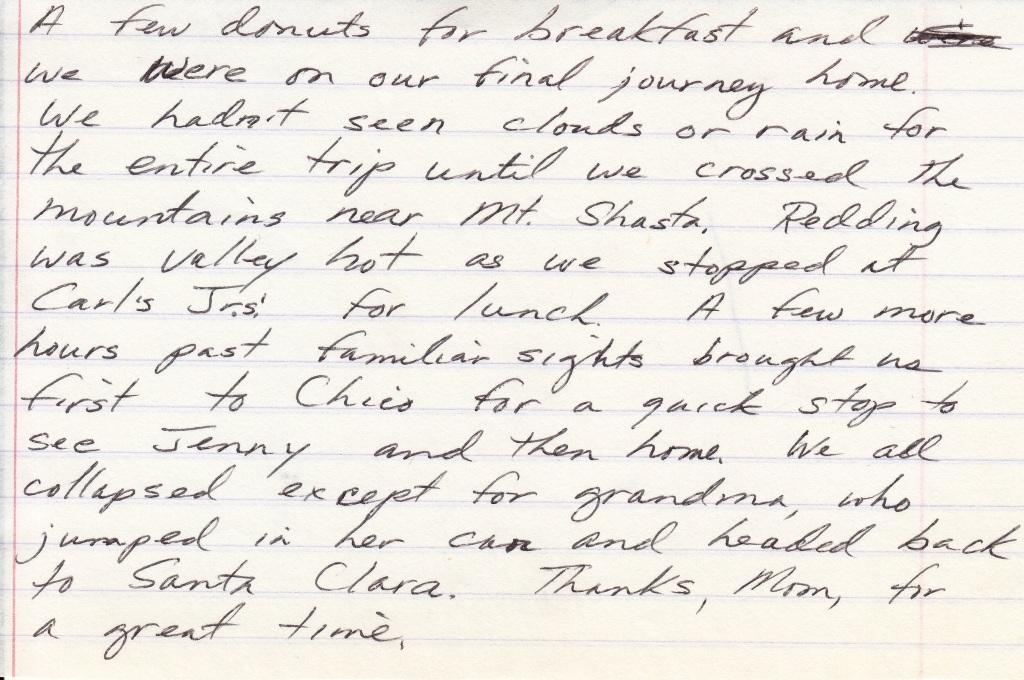 A few donuts for breakfast and
we were on our final journey home.
We hadn't seen clouds or rain for
the entire trip until we crossed the
mountains near Mt. Shasta. Redding
was valley hot as we stopped at
Carl's Jrs! for lunch. A few more
hours past familiar sights brought us
first to Chico for a quick stop to
see Jenny and then home. We all
collapsed except for grandma, who
jumped in her car and headed back
to Santa Clara. Thanks, Mom, for
a great time.